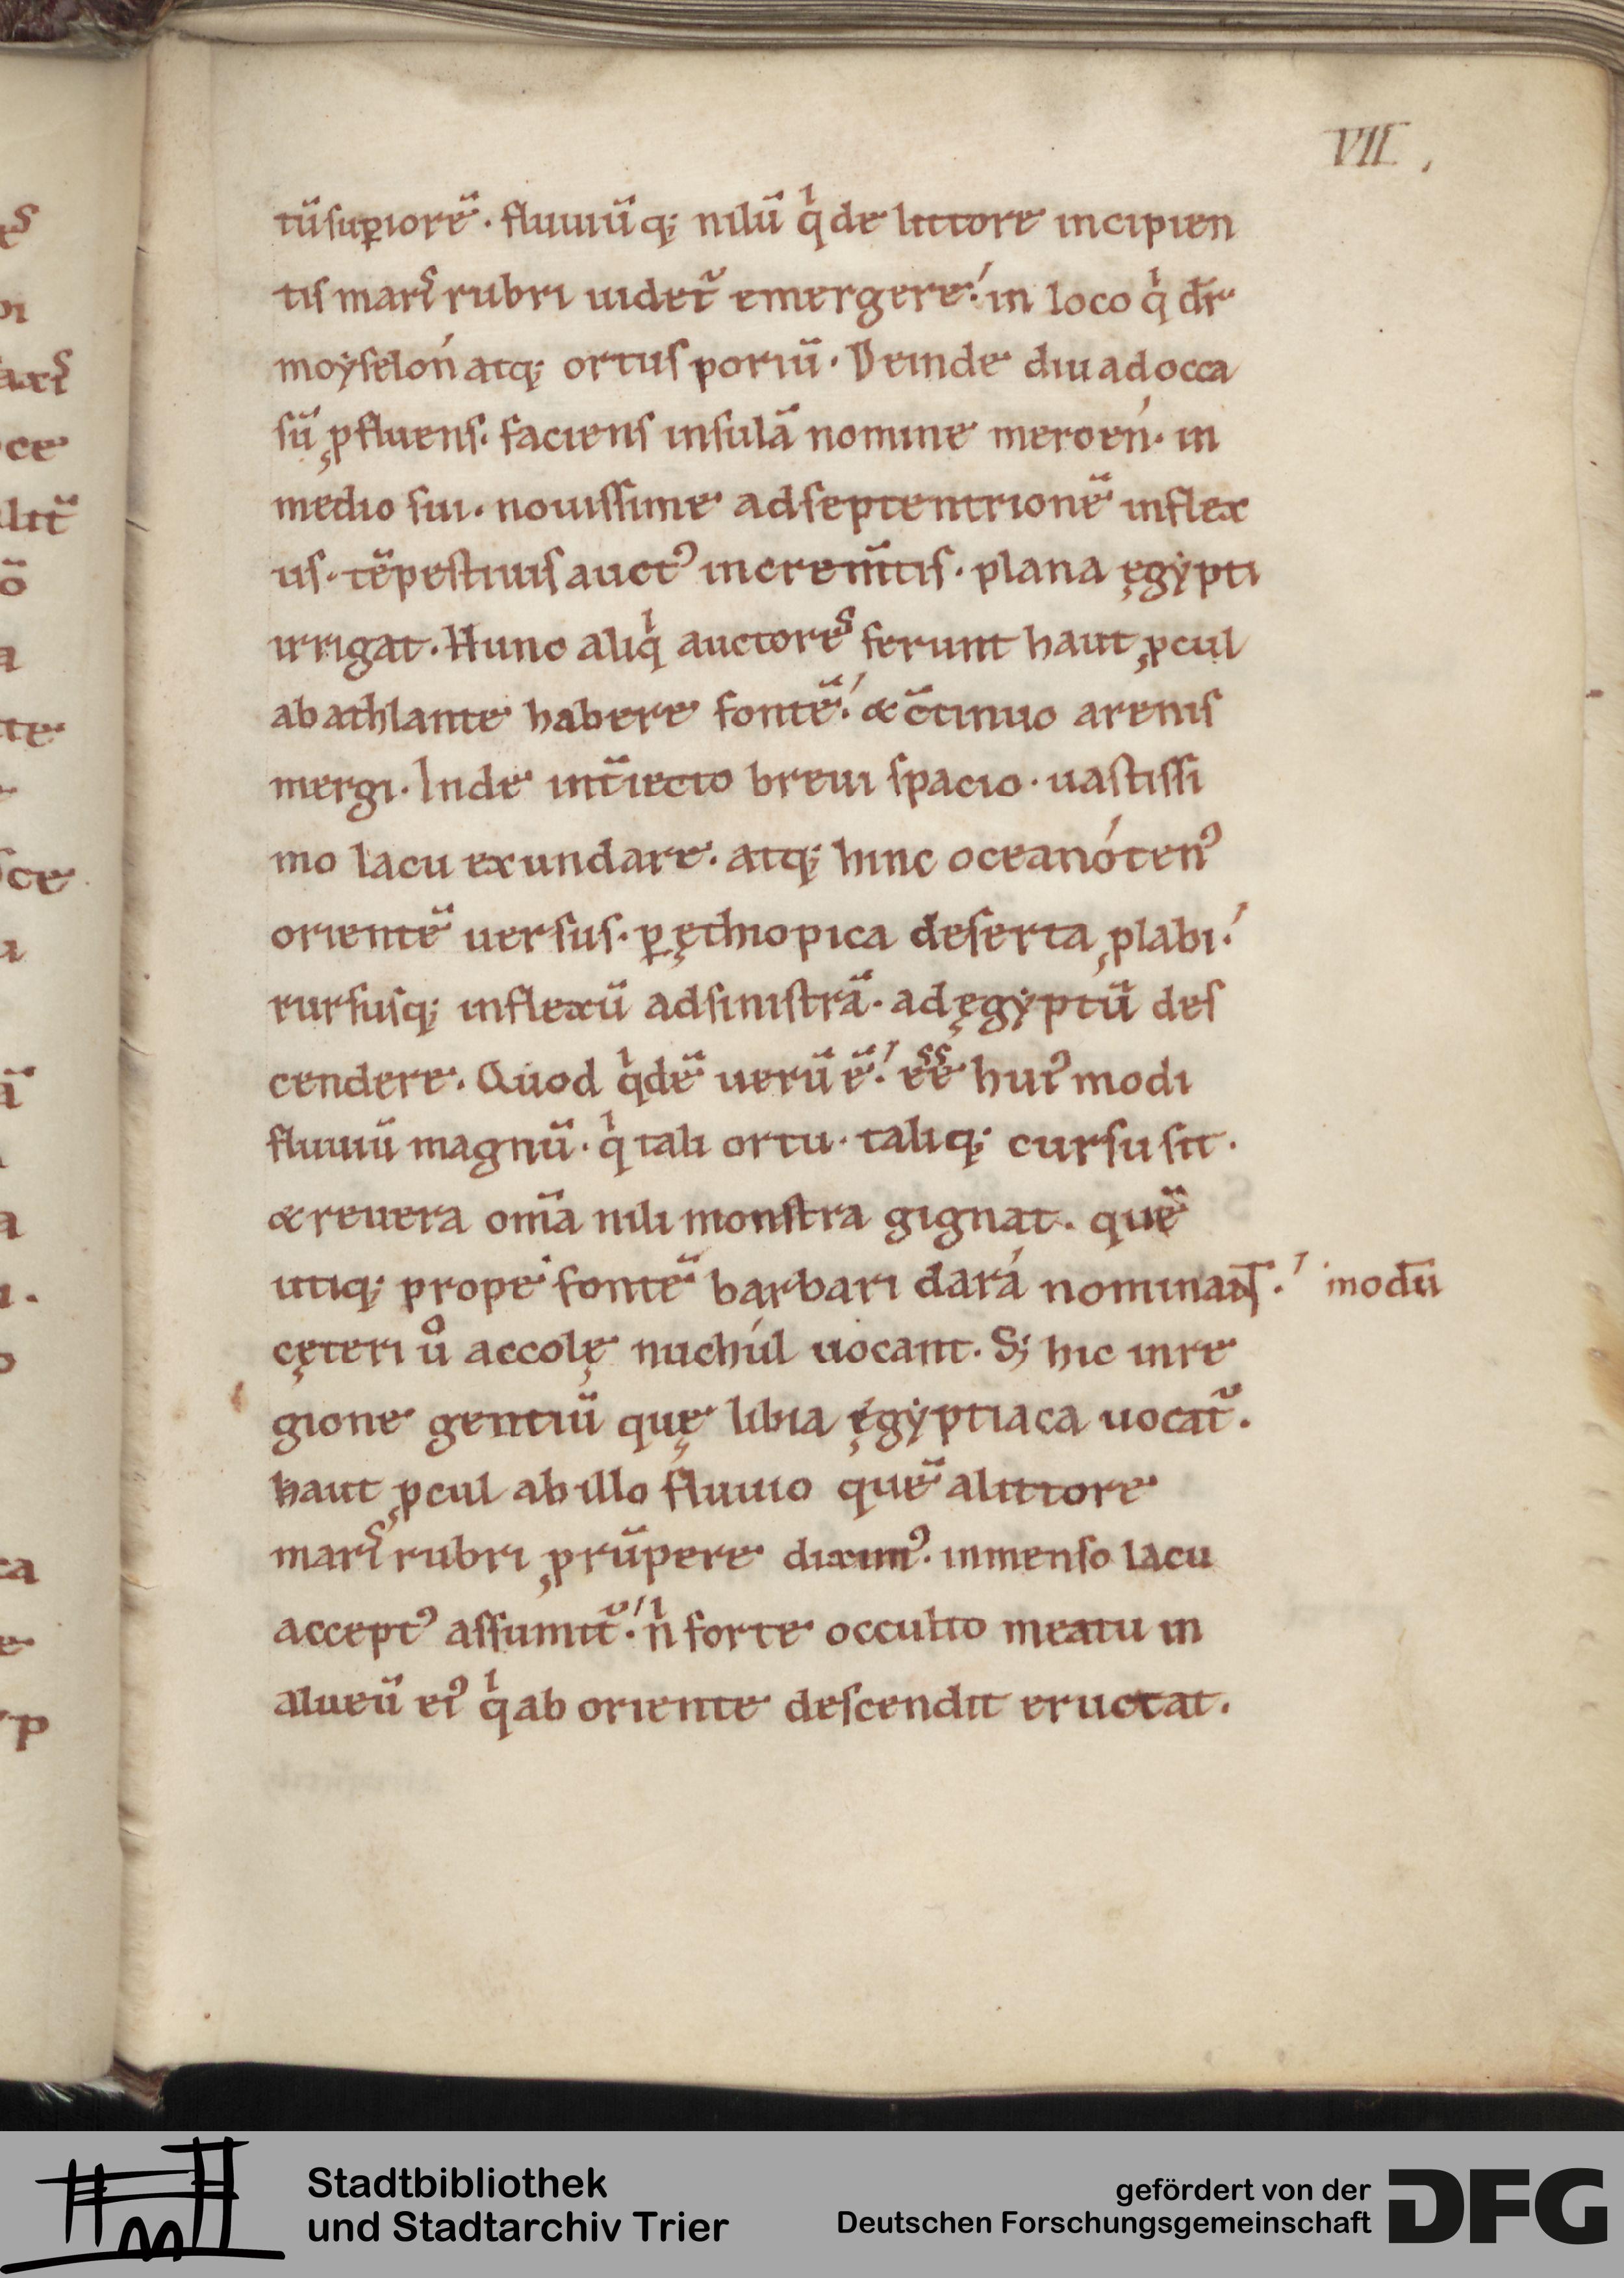 VII.
tū suꝑiorē. fluuiūq; nilū qͥ de littore incipien
tis maris rubri uidet᷑ emergere. in loco qͥ dr̄
moẏselón atq; ortus poriū. Deinde diu ad occa
sū ꝓfluens. faciens insulā nomine meroén. in
medio sui. nouissime ad septentrionē inflex
us. tēpestiuis auctꝰ increm̄tis. plana ęgẏpti
irrigat. Hunc aliqͥ auctores ferunt haut ꝓcul
ab athlante habere fontē. & c̄tinuo arenis
mergi. Inde int̄iecto breui spacio. uastissi
mo lacu exundare. atq; hinc oceanótenꝰ
orientē uersus. ꝑ ęthiopica deserta ꝓlabi.
rursusq; inflexū ad sinistrā. ad ęgẏptū des
cendere. Quod qͥdē uerū ē. eē huiꝰmodi
fluuiū magnū. qͥ tali ortu. taliq; cursu sit.
& reuera om̄a nili monstra gignat. quē
utiq; prope fontē barbari dará nominant. modū
cęteri uͦ accolę nuchúl uocant. S; hic in re
gione gentiū quę libia ęgẏptiaca uocat᷑.
haut ꝓcul ab illo fluuio quē a littore
maris rubri ꝓrūpere diximꝰ. inmenso lacu
acceptꝰ assumit᷑. nͥ forte occulto meatu in
alueū eiꝰ qͥ ab oriente descendit eructat.
Stadtbibliothek
und Stadtarchiv Trier
gefördert von der
Deutschen Forschungsgemeinschaft
DFG